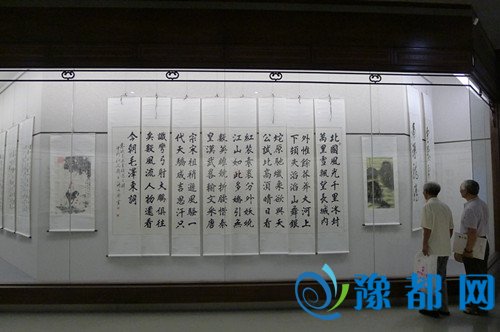 北國風光千里冰封
萬里雪飄望長城內
外惟餘莽莽大河上
下頓失滔滔山舞銀
蛇原馳蠟象欲與天
公試比高須晴日看
紅裝素裹分外妖嬈
江山如此多嬌引無
數英雄競折腰惜秦
皇漢武略輸文采唐
宗宋祖稍遜風騷一
代天驕成吉思汗只
識彎弓射大鵰俱往
矣數風流人物還看
今朝毛澤東詞
豫都网